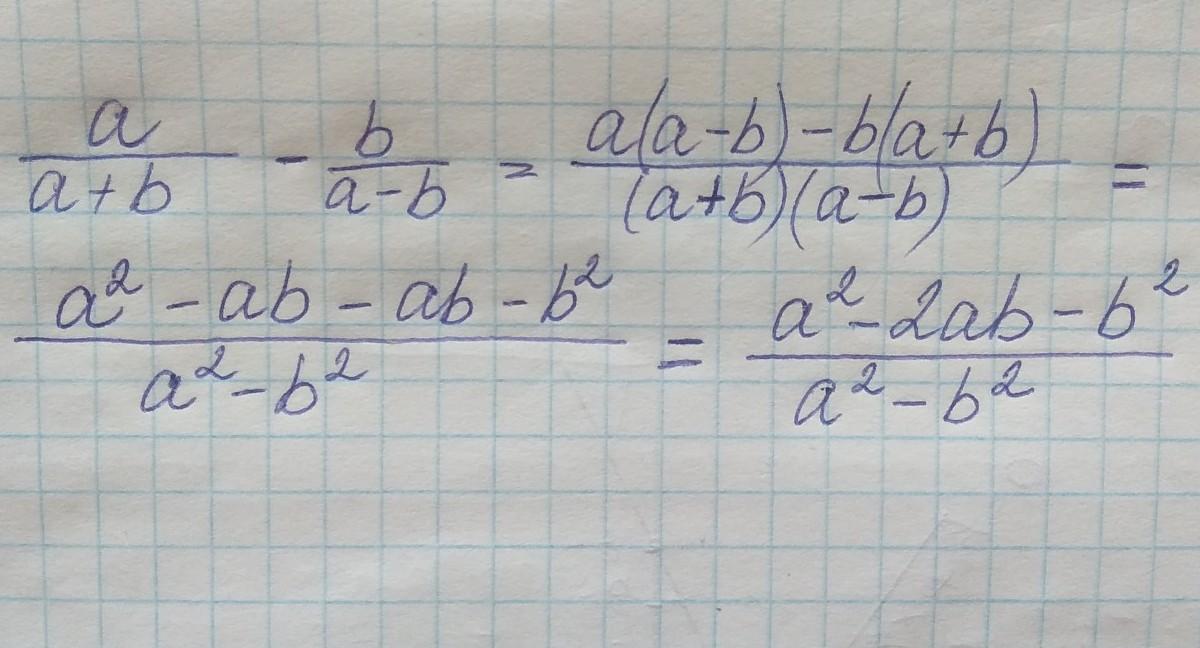 a/(a+b) - b/(a-b) = (a(a-b)-b(a+b))/((a+b)(a-b)) =
(a²-ab-ab-b²)/(a²-b²) = (a²-2ab-b²)/(a²-b²)